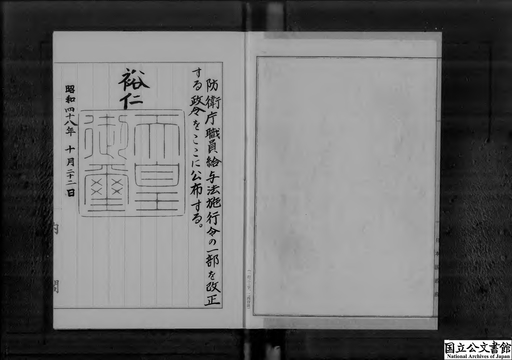 防衛庁職員給与法施行令の一部を改正
する政令をここに公布する。
裕仁
天皇
御璽
昭和四十八年十月二十二日
国立公文書館
National Archives of Japan